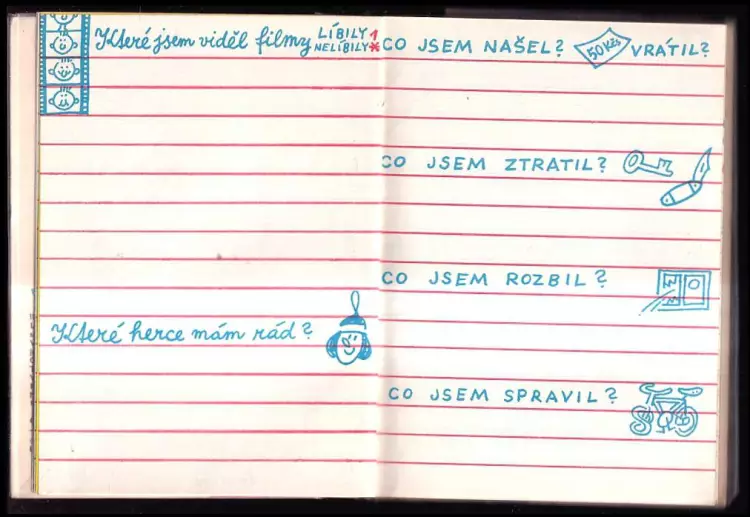 Které jsem viděl filmy LÍBILY 1
NELÍBILY *
Které herce mám rád?
CO JSEM NAŠEL? 50 Kčs VRÁTIL?
CO JSEM ZTRATIL?
CO JSEM ROZBIL?
CO JSEM SPRAVIL?